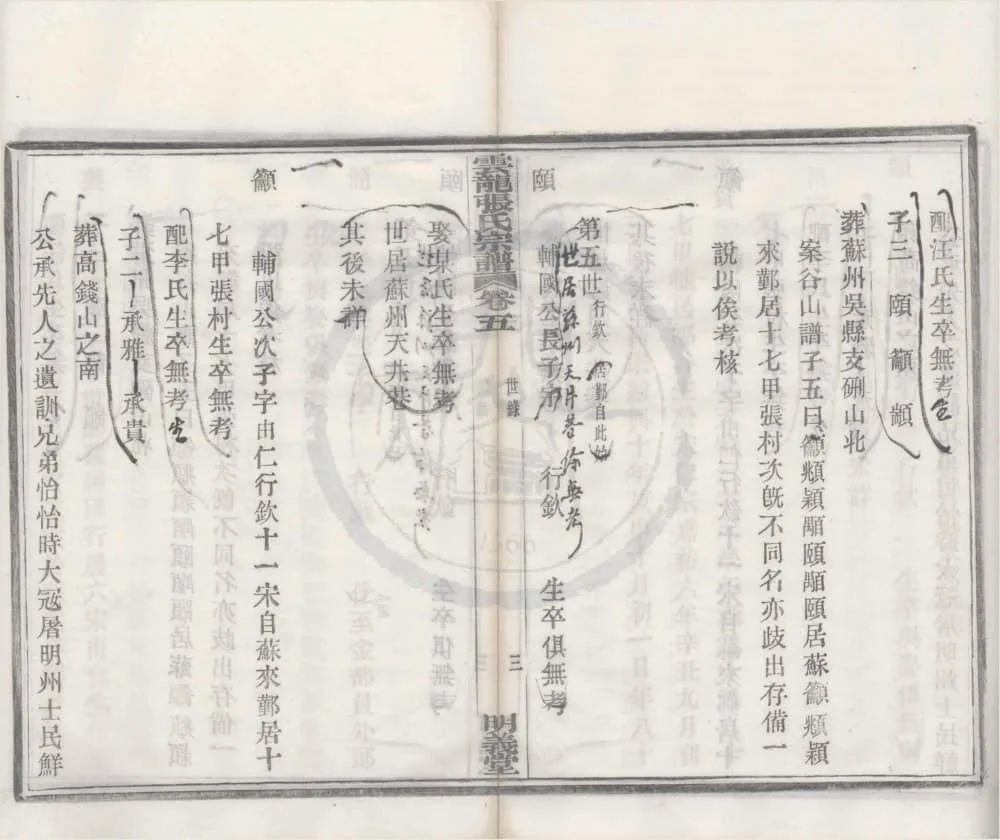 配汪氏生卒無考生
子三 頤 籲 顓
葬蘇州吳縣支硎山北
案谷山譜子五曰籲頫穎顒頤顒頤居蘇籲頫穎
來鄞居十七甲張村次旣不同名亦歧出存備一
說以俟考核
第五世 行欽 居鄞自此始
世居蘇州天井巷餘無考
頤
輔國公長子字 行欽 生卒俱無考
雲龍張氏宗譜 卷五
世錄
三
明義堂
娶某氏生卒無考
世居蘇州天井巷
其後未詳
籲
輔國公次子字由仁行欽十一宋自蘇來鄞居十
七甲張村生卒無考
配李氏生卒無考生
子二 承雅 承貴
葬高錢山之南
公承先人之遺訓兄弟怡怡時大冦屠明州士民鮮